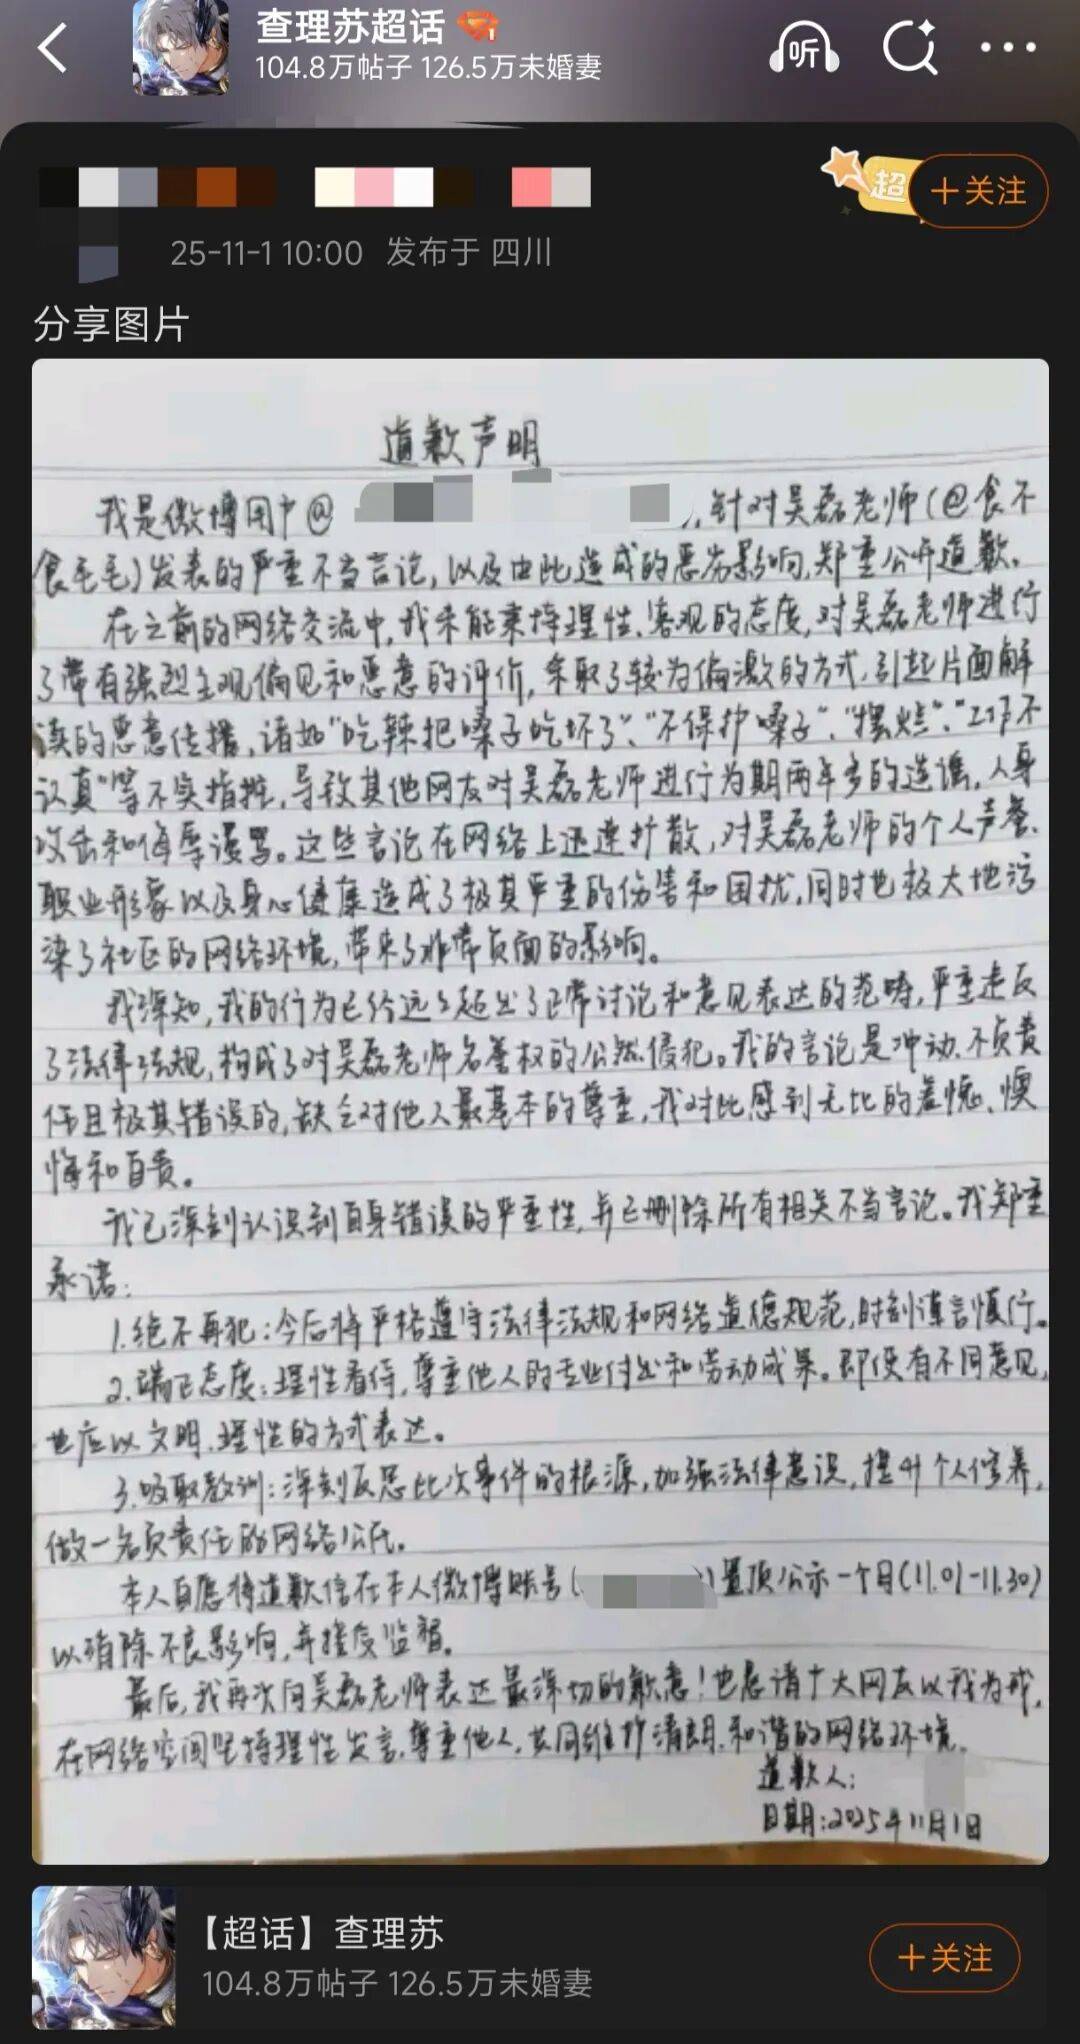 查理苏超话
104.8万帖子 126.5万未婚妻
听
超
+关注
25-11-1 10:00 发布于 四川
分享图片
道歉声明
我是微博用户@ ,针对吴磊老师(@食不
食毛毛)发表的严重不当言论,以及由此造成的恶劣影响,郑重公开道歉。
在之前的网络交流中,我未能秉持理性、客观的态度,对吴磊老师进行
了带有强烈主观偏见和恶意的评价,采取了较为偏激的方式,引起片面解
读的恶意传播,诸如"吃辣把嗓子吃坏了"、"不保护嗓子"、"摆烂"、"工作不
认真"等不实指控,导致其他网友对吴磊老师进行为期两年多的造谣,人身
攻击和侮辱谩骂。这些言论在网络上迅速扩散,对吴磊老师的个人声誉、
职业形象以及身心健康造成了极其严重的伤害和困扰,同时也极大地污
染了社区的网络环境,带来了非常负面的影响。
我深知,我的行为已经远远超出了正常讨论和意见表达的范畴,严重违反
了法律法规,构成了对吴磊老师名誉权的公然侵犯。我的言论是冲动、不负责
任且极其错误的,缺乏对他人最基本的尊重,我对此感到无比的羞愧、懊
悔和自责。
我已深刻认识到自身错误的严重性,并已删除所有相关不当言论。我郑重
承诺:
1.绝不再犯:今后将严格遵守法律法规和网络道德规范,时刻谨言慎行。
2.端正态度:理性看待,尊重他人的专业付出和劳动成果。即使有不同意见,
也应以文明、理性的方式表达。
3.吸取教训:深刻反思此次事件的根源,加强法律意识,提升个人修养,
做一名负责任的网络公民。
本人自愿将道歉信在本人微博账号( )置顶公示一个月(11.01-11.30)
以消除不良影响,并接受监督。
最后,我再次向吴磊老师表达最深切的歉意!也恳请广大网友以我为戒,
在网络空间坚持理性发言,尊重他人,共同维护清朗、和谐的网络环境。
道歉人:
日期:2025年11月1日
【超话】查理苏
104.8万帖子 126.5万未婚妻
+关注